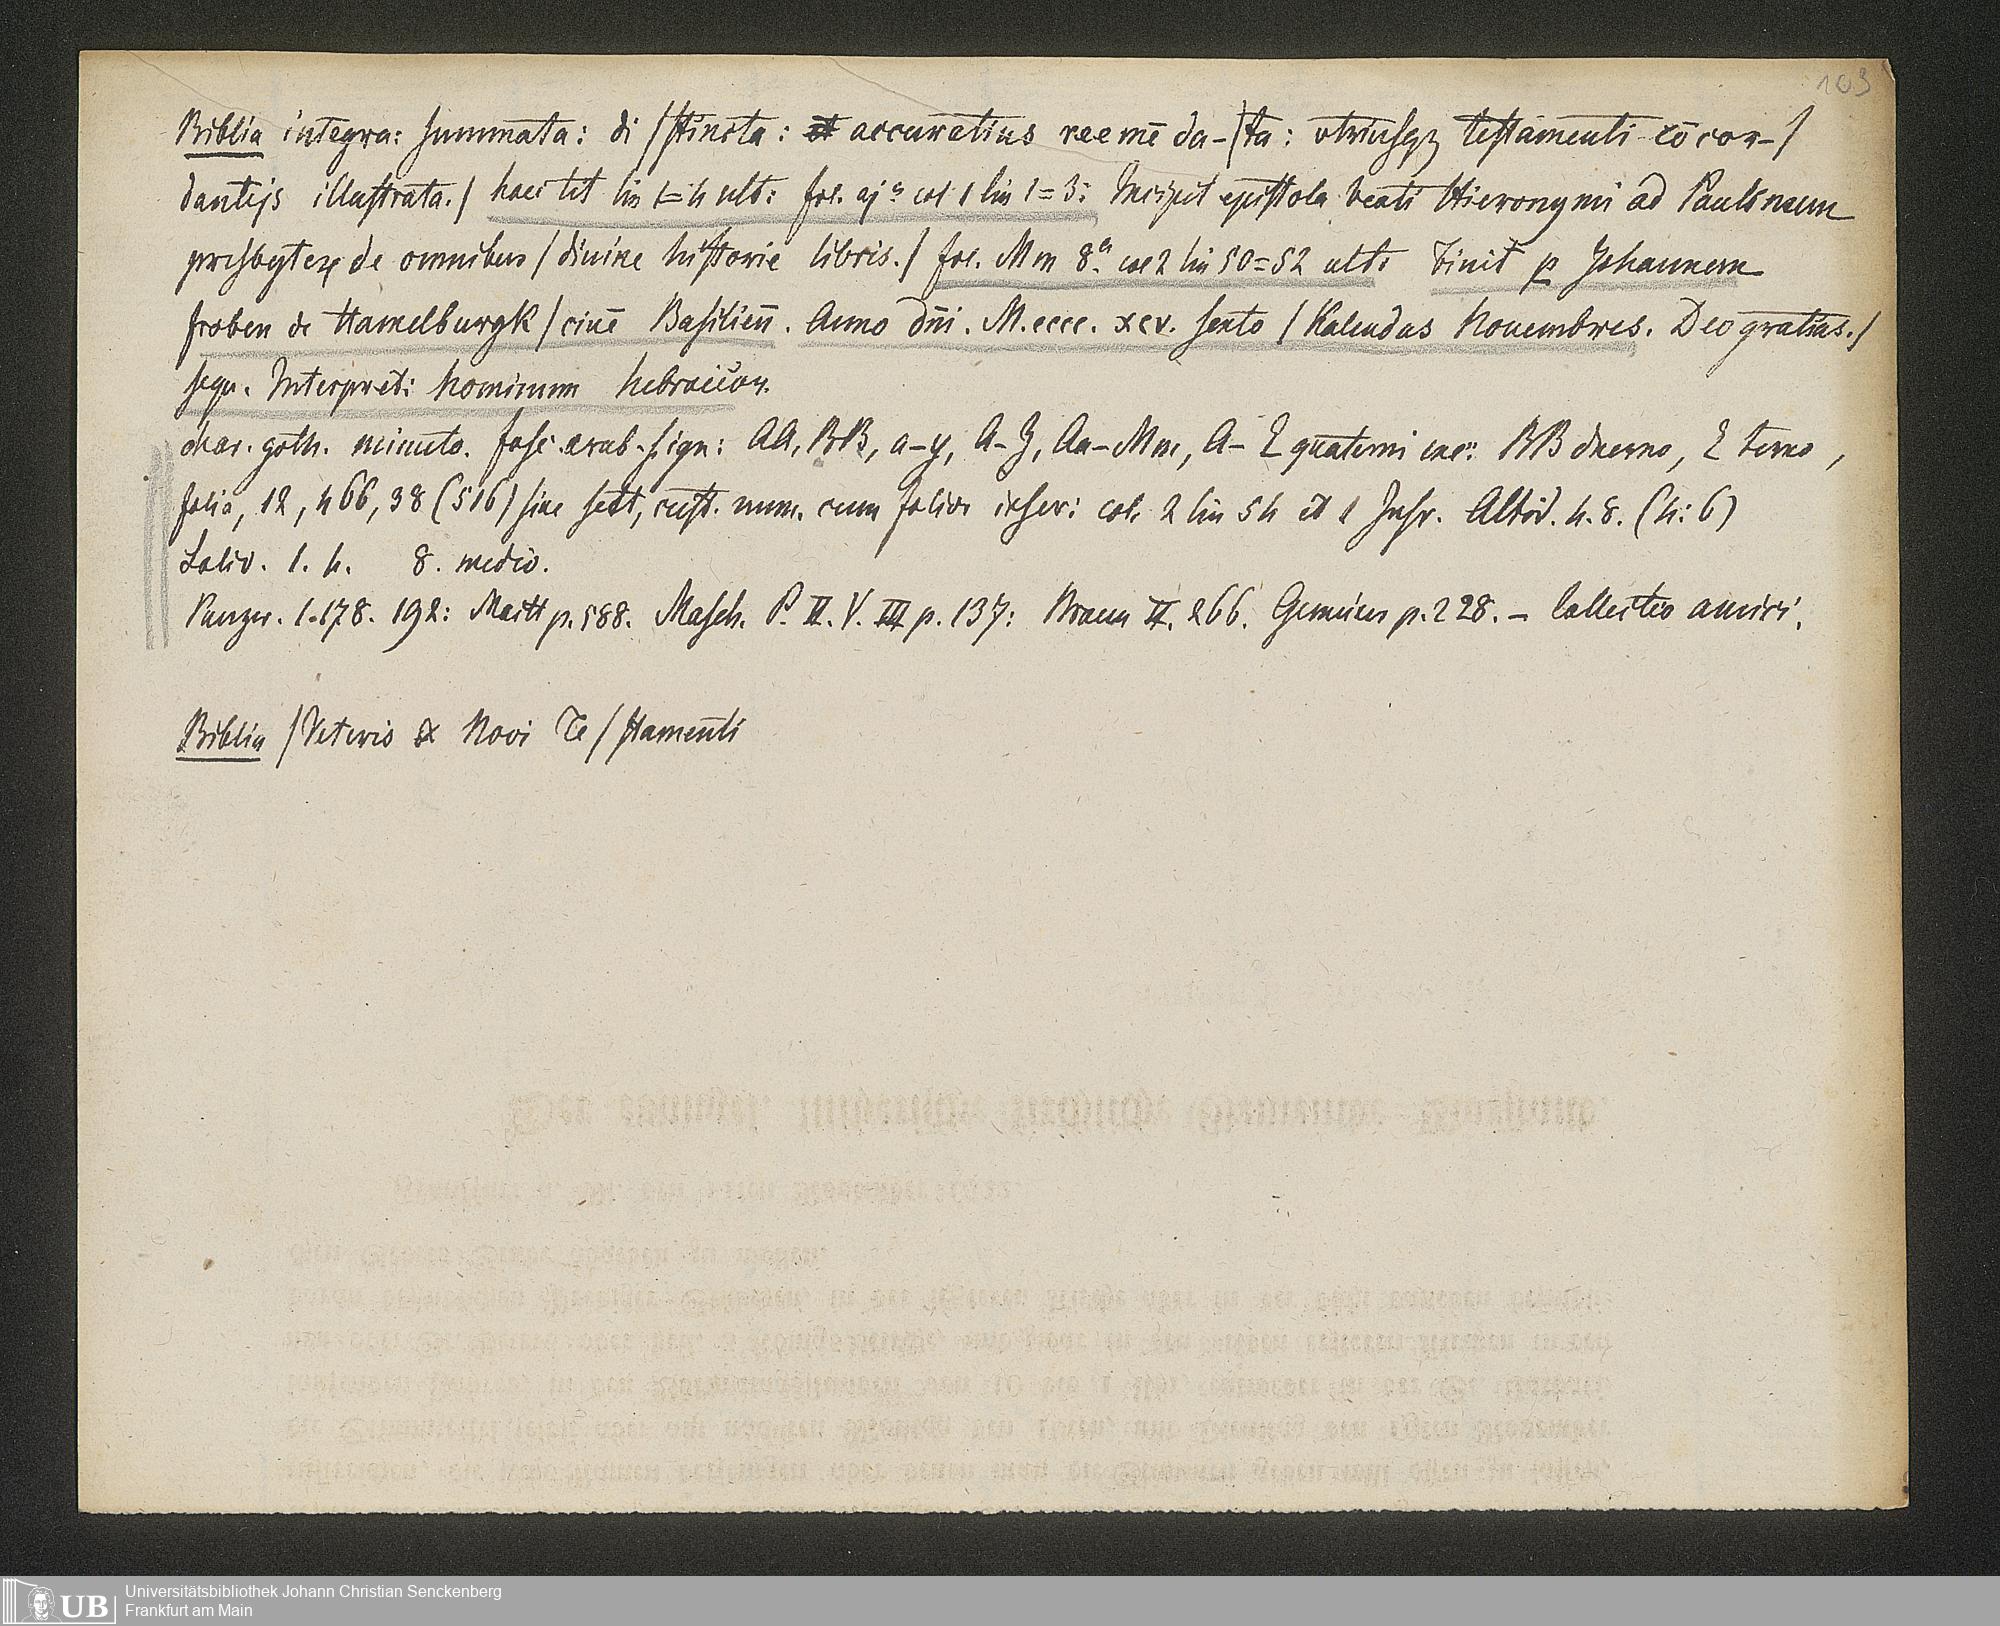 103
Biblia integra: summata: di/stincta: et accuratius reemēda-/ta: vtriusqz testamenti cōcor-/
dantijs illustrata./ haec tit lin 1=4 ult: fol. aj a col 1 lin 1=3: Incipit epistola beati Hieronymi ad Paulinum
presbyterū de omnibus / diuine historie libris./ fol. Mm 8.a col 2 lin 50=52 ult: Finit p Johannem
froben de Hamelburgk / ciuē Basilień. Anno dñi. M.cccc. xcv. sexto / Kalendas Nouembres. Deo gratias./
sequ. Interpret: Nominum hebraicor.
char. goth. minuto. fasc. arab. sign: AA, BB, a-y, A-Z, Aa-Mm, A-E quaterni exc: BB duerno, E terno,
folia, 12, 466, 38 (516) sine cust. num. cum folior inscr: col. 2 lin 54 et 1 Insr. Altid. 4.8. (4:6)
Latid. 1. 4. 8. medio.
Panzer. I.178. 192: Maitt p. 588. Masch. P. II. V. III p. 137: Braun II. 266. Gemeiner p. 228. – Collectio amici.
Biblia / Veteris & Novi Te/stamenti
Universitätsbibliothek Johann Christian Senckenberg
UB Frankfurt am Main